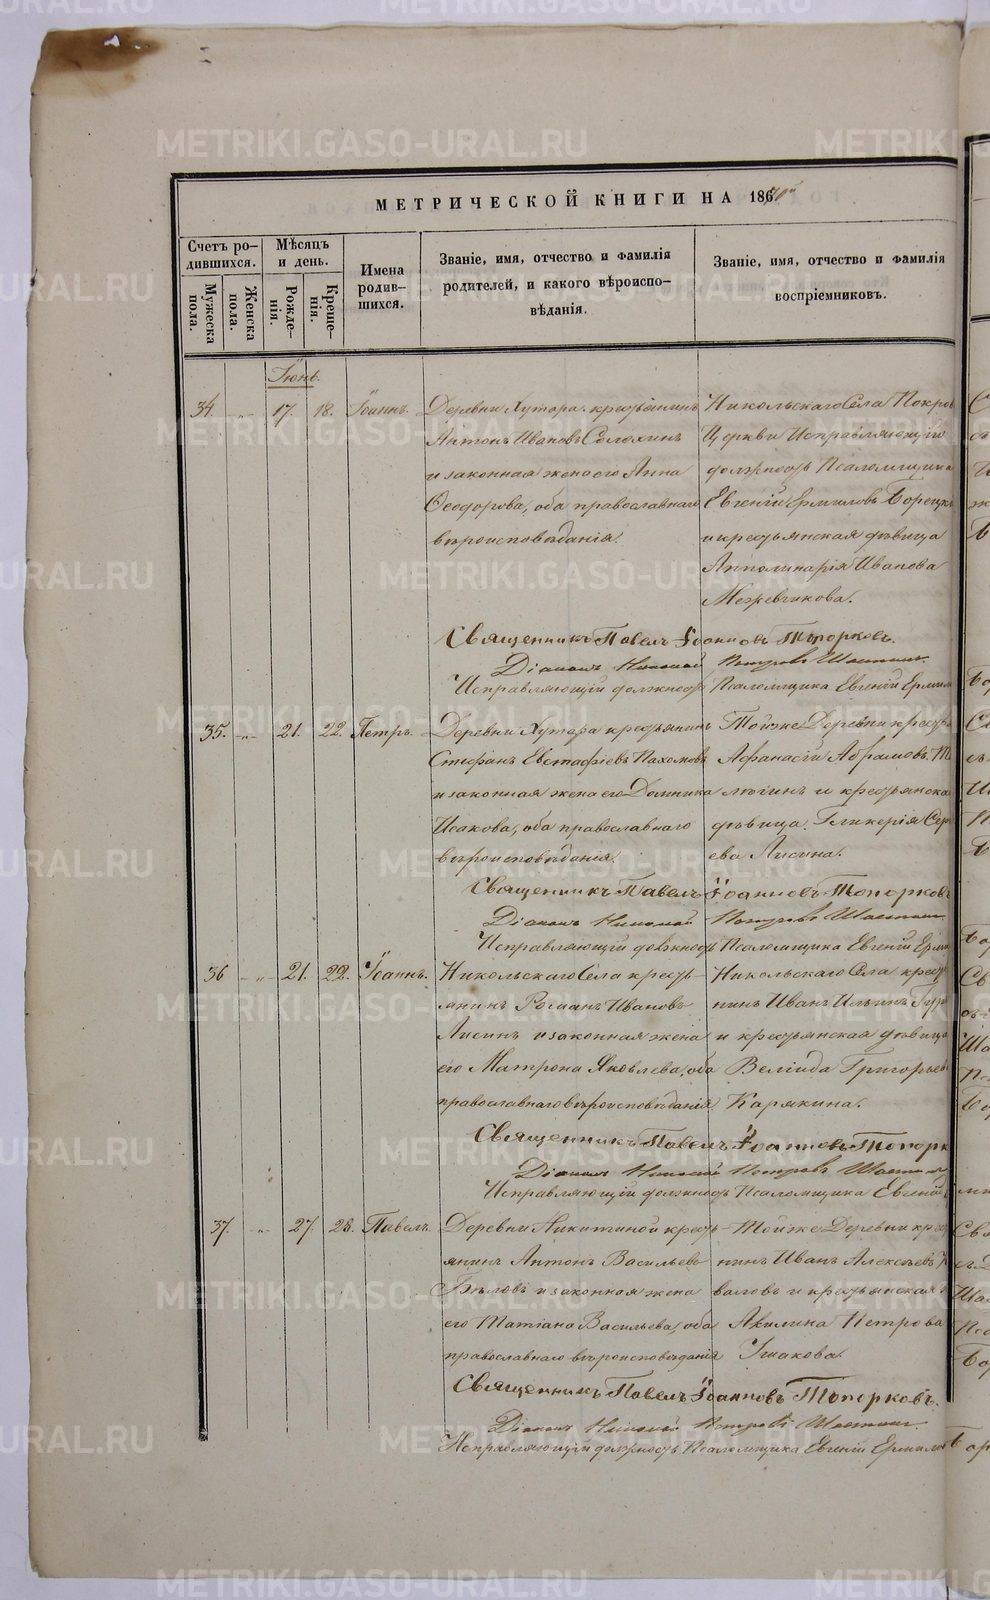 МЕТРИЧЕСКОЙ КНИГИ НА 1870й
Счетъ родившихся.
Мужеска пола.
Женска пола.
Мѣсяцъ и день.
Рожденія.
Крещенія.
Имена родившихся.
Званіе, имя, отчество и фамилія родителей, и какого вѣроисповѣданія.
Званіе, имя, отчество и фамилія воспріемниковъ.
Іюнь.
34. 17. 18. Іоаннъ.
Деревни Хутора крестьянинъ
Антонъ Ивановъ Соломинъ
и законная жена его Анна
Ѳеодорова, оба православнаго
вѣроисповѣданія.
Никольскаго Села Покров
Церкви Исправляющій
должность Псаломщика
Евгеній Ермиловъ Борецк
и крестьянская дѣвица
Апполинарія Иванова
Межевикова.
Священникъ Павелъ Іоанновъ Топорковъ.
Діаконъ Николай Петровъ
Исправляющій должность Псаломщика Евгеній Ермил
35. 21. 22. Петръ.
Деревни Хутора крестьянинъ
Стефанъ Евстафіевъ Пахомовъ
и законная жена его Домника
Исакова, оба православнаго
вѣроисповѣданія.
Тойже Деревни крестья
Афанасій Абрамовъ
и крестьянска
дѣвица Гликерія Сер
ева Лисина.
Священникъ Павелъ Іоанновъ Топорковъ
Діаконъ Николай Петровъ
Исправляющій должность Псаломщика Евгеній Ерми
36 21. 22. Іоаннъ.
Никольскаго Села кресть-
янинъ Романъ Ивановъ
Лисинъ и законная жена
его Матрона Яковлева, оба
православнаго вѣроисповѣданія
Никольскаго Села крестья
нинъ Иванъ Ильинъ Гур
и крестьянская дѣвица
Григорьев
Карякина.
Священникъ Павелъ Іоанновъ Топорк
Діаконъ Николай Петровъ
Исправляющій должность Псаломщика Евгеній
37. 27. 28. Павелъ.
Деревни Никитиной кресть-
янинъ Антонъ Васильевъ
Бѣловъ и законная жена
его Татіана Васильева, оба
православнаго вѣроисповѣданія
Тойже Деревни крест
нинъ Иванъ Алексѣевъ
валовъ и крестьянская
Акилина Петрова
Ушакова.
Священникъ Павелъ Іоанновъ Топорковъ.
Діаконъ Николай Петровъ
Исправляющій должность Псаломщика Евгеній Ермилов
METRIKI.GASO-URAL.RU